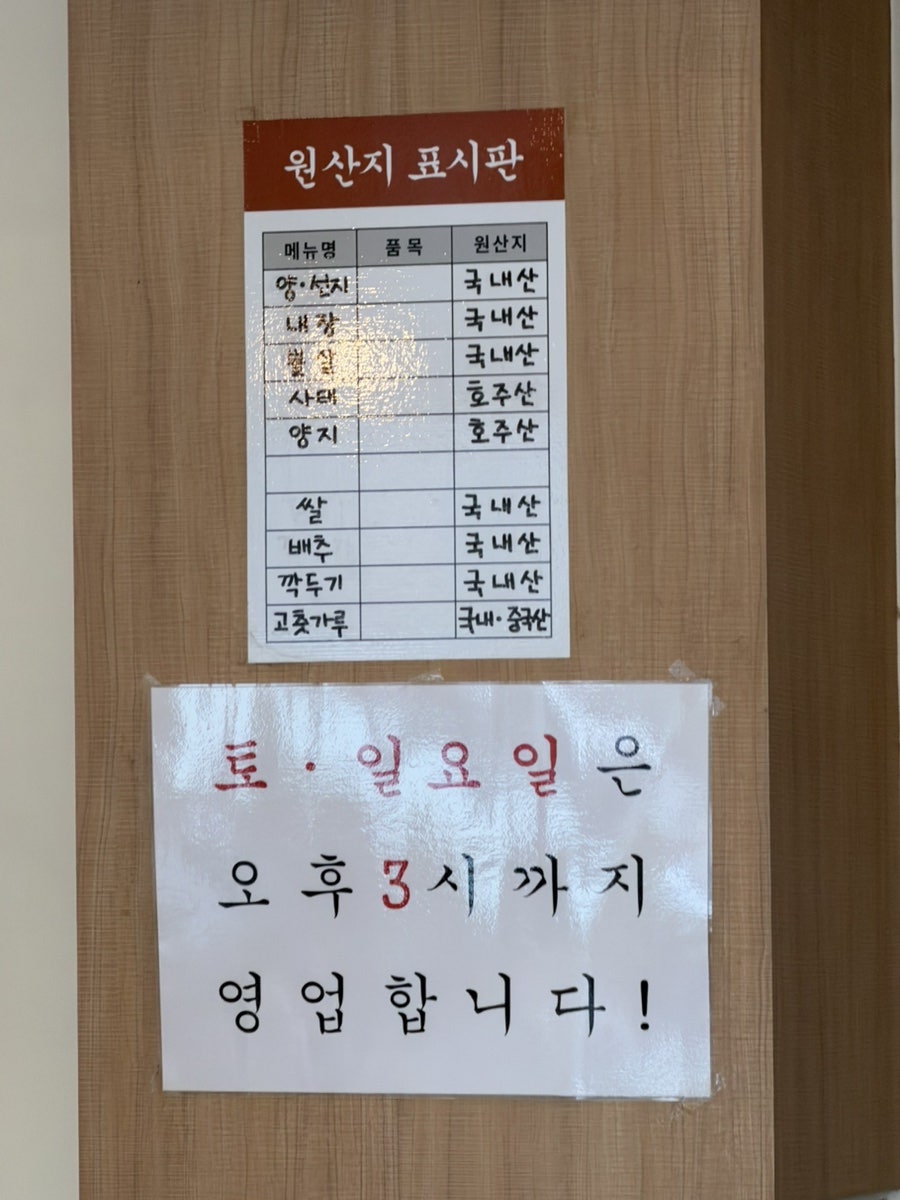 원산지 표시판
메뉴명 품목 원산지
양·선지 국내산
내장 국내산
볼살 국내산
사태 호주산
양지 호주산
쌀 국내산
배추 국내산
깍두기 국내산
고춧가루 국내·중국산
토·일요일은
오후 3시까지
영업합니다!